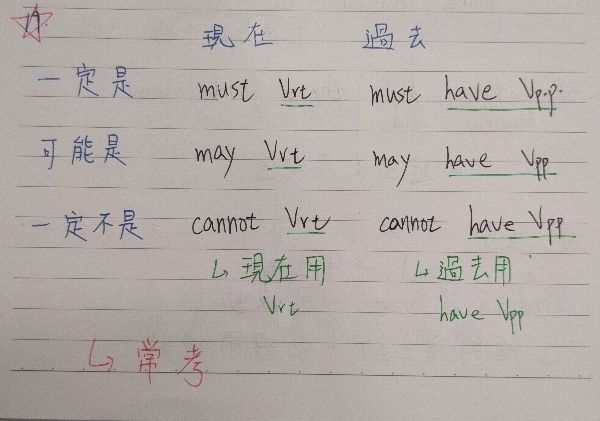 現在 過去
一定是 must Vrt must have Vp.p.
可能是 may Vrt may have Vpp
一定不是 cannot Vrt cannot have Vpp
↳ 現在用 ↳ 過去用
Vrt have Vpp
↳ 常考